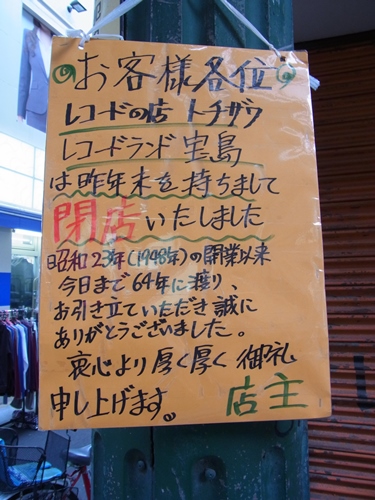 お客様各位
レコードの店 トチザワ
レコードランド 宝島
は昨年末を持ちまして
閉店いたしました
昭和23年(1948年)の開業以来
今日まで64年に渡り、
お引き立ていただき誠に
ありがとうございました。
衷心より厚く厚く御礼
申し上げます。
店主